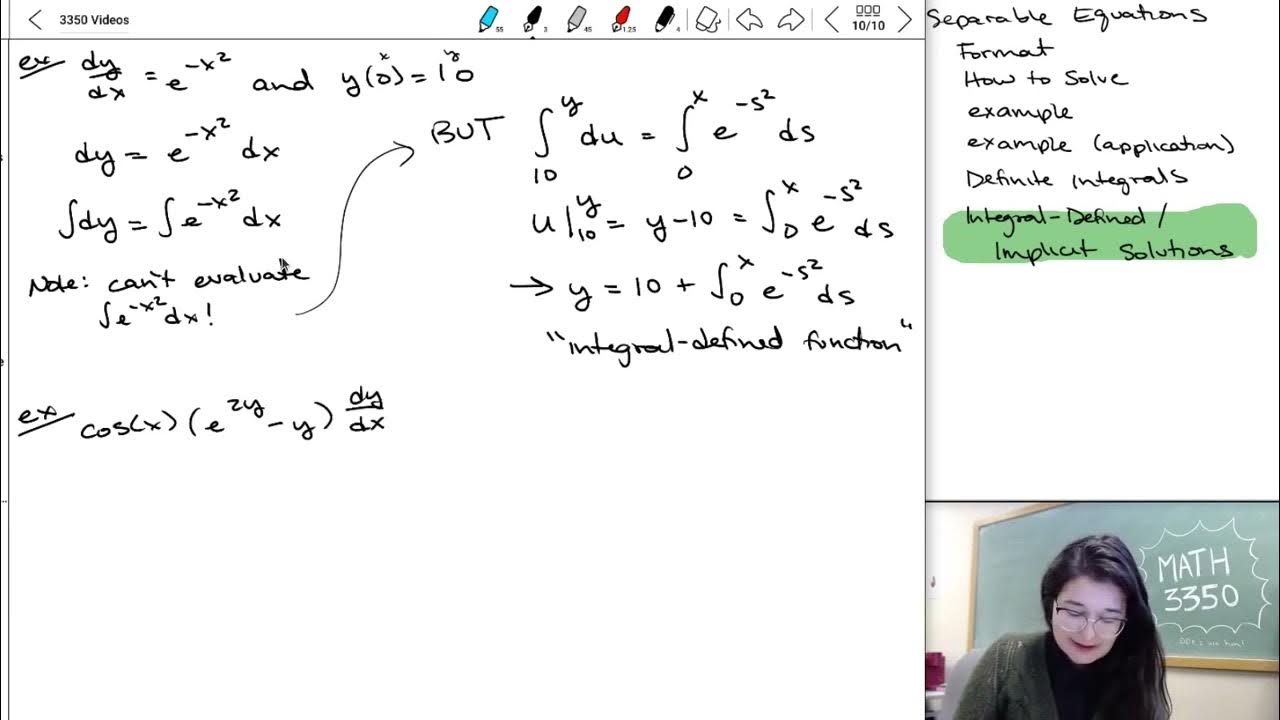 3350 Videos
55
3
45
1.25
4
10/10
ex dy/dx = e^{-x^2} and y(0) = 10
x y
dy = e^{-x^2} dx
∫dy = ∫e^{-x^2} dx
Note: can't evaluate
∫e^{-x^2} dx!
BUT ∫_{10}^{y} du = ∫_{0}^{x} e^{-s^2} ds
u|_{10}^{y} = y-10 = ∫_{0}^{x} e^{-s^2} ds
→ y = 10 + ∫_{0}^{x} e^{-s^2} ds
"integral-defined function"
ex cos(x)(e^{2y} - y) dy/dx
Separable Equations
Format
How to Solve
example
example (application)
Definite Integrals
Integral-Defined/
Implicit Solutions
MATH
3350